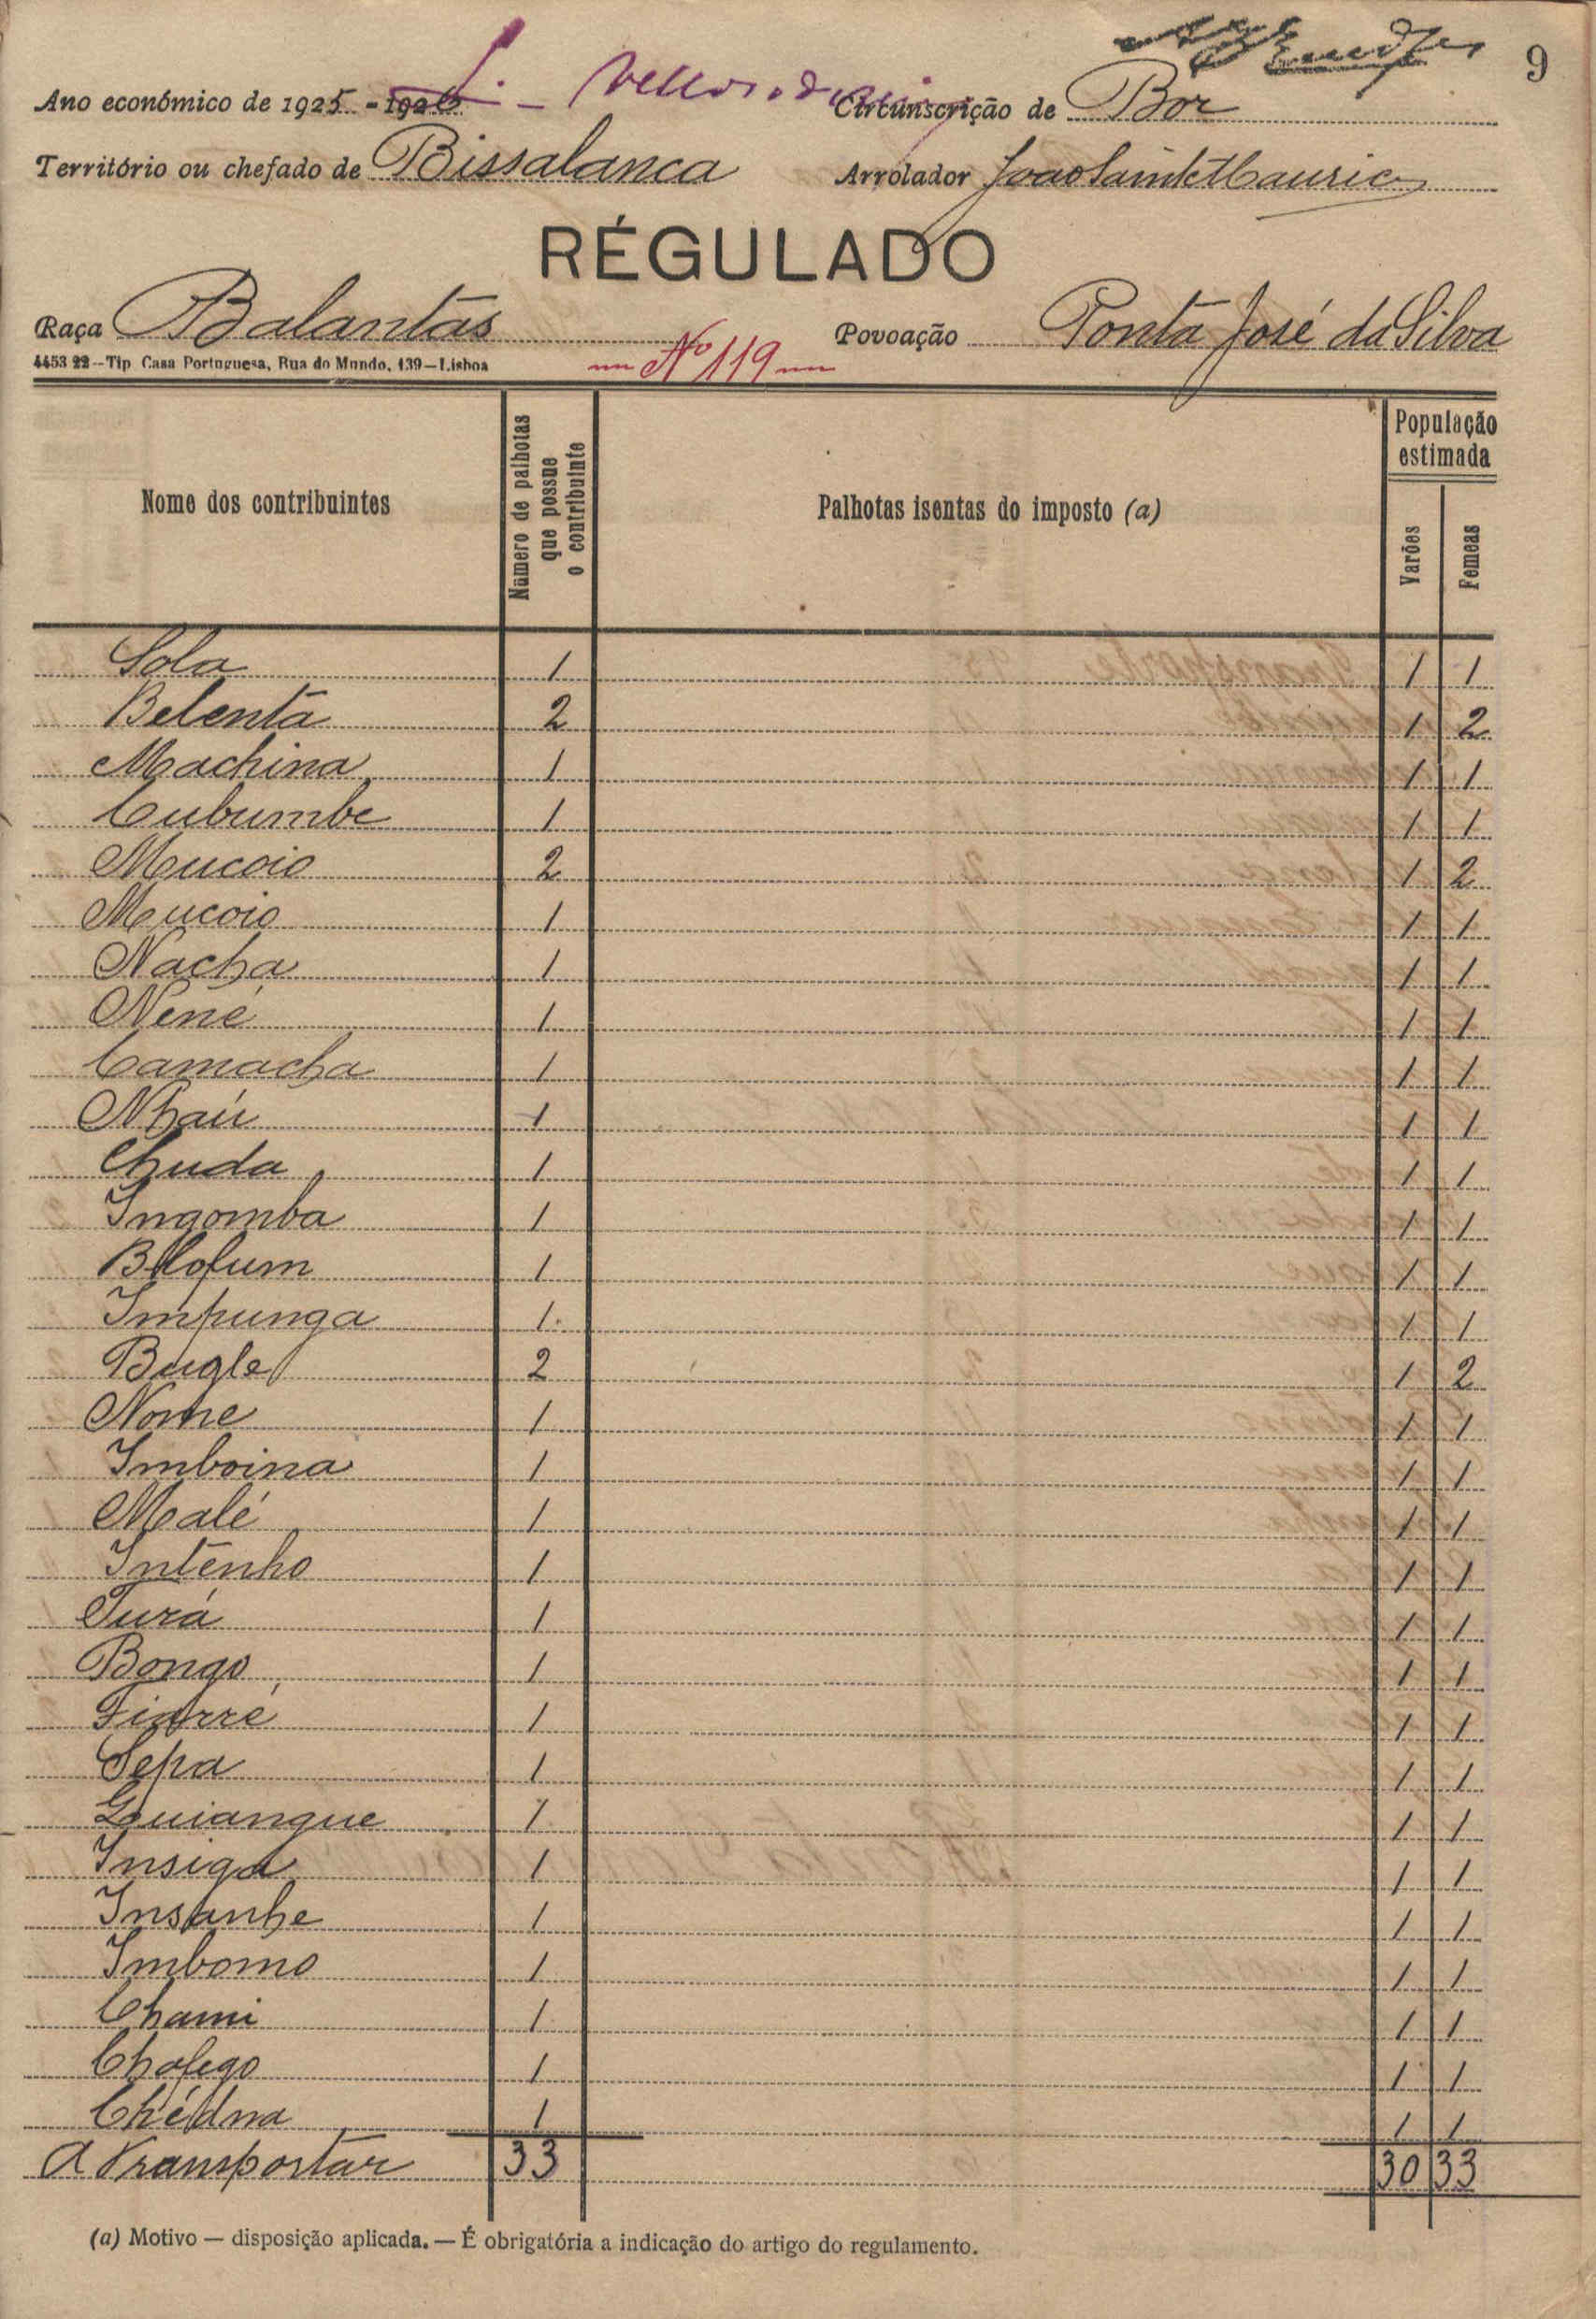 9
Ano económico de 1925 - 1926 Circunscrição de Bor
Território ou chefado de Bissalanca Arrolador João Saint Maurice
RÉGULADO
Raça Balantas Povoação Ponta José da Silva
4453 22 -- Tip Casa Portuguesa, Rua do Mundo, 139 — Lisboa
Nº 119
Nome dos contribuintes Número de palhotas que possue o contribuinte Palhotas isentas do imposto (a) População estimada
Varões Femeas
Sola 1 1 1
Belenta 2 1 2
Machina 1 1 1
Cubumbe 1 1 1
Mucoio 2 1 2
Mucoio 1 1 1
Nacha 1 1 1
Nené 1 1 1
Camacha 1 1 1
Nhaú 1 1 1
Chuda 1 1 1
Ingomba 1 1 1
Blofum 1 1 1
Impunga 1 1 1
Bugle 2 1 2
Nome 1 1 1
Imboina 1 1 1
Malé 1 1 1
Intenho 1 1 1
Turá 1 1 1
Bongo 1 1 1
1 1 1
Sepa 1 1 1
Quiangue 1 1 1
Insiga 1 1 1
Insanhe 1 1 1
Imbomo 1 1 1
Chami 1 1 1
Chofego 1 1 1
1 1 1
A transportar 33 30 33
(a) Motivo — disposição aplicada. — É obrigatória a indicação do artigo do regulamento.